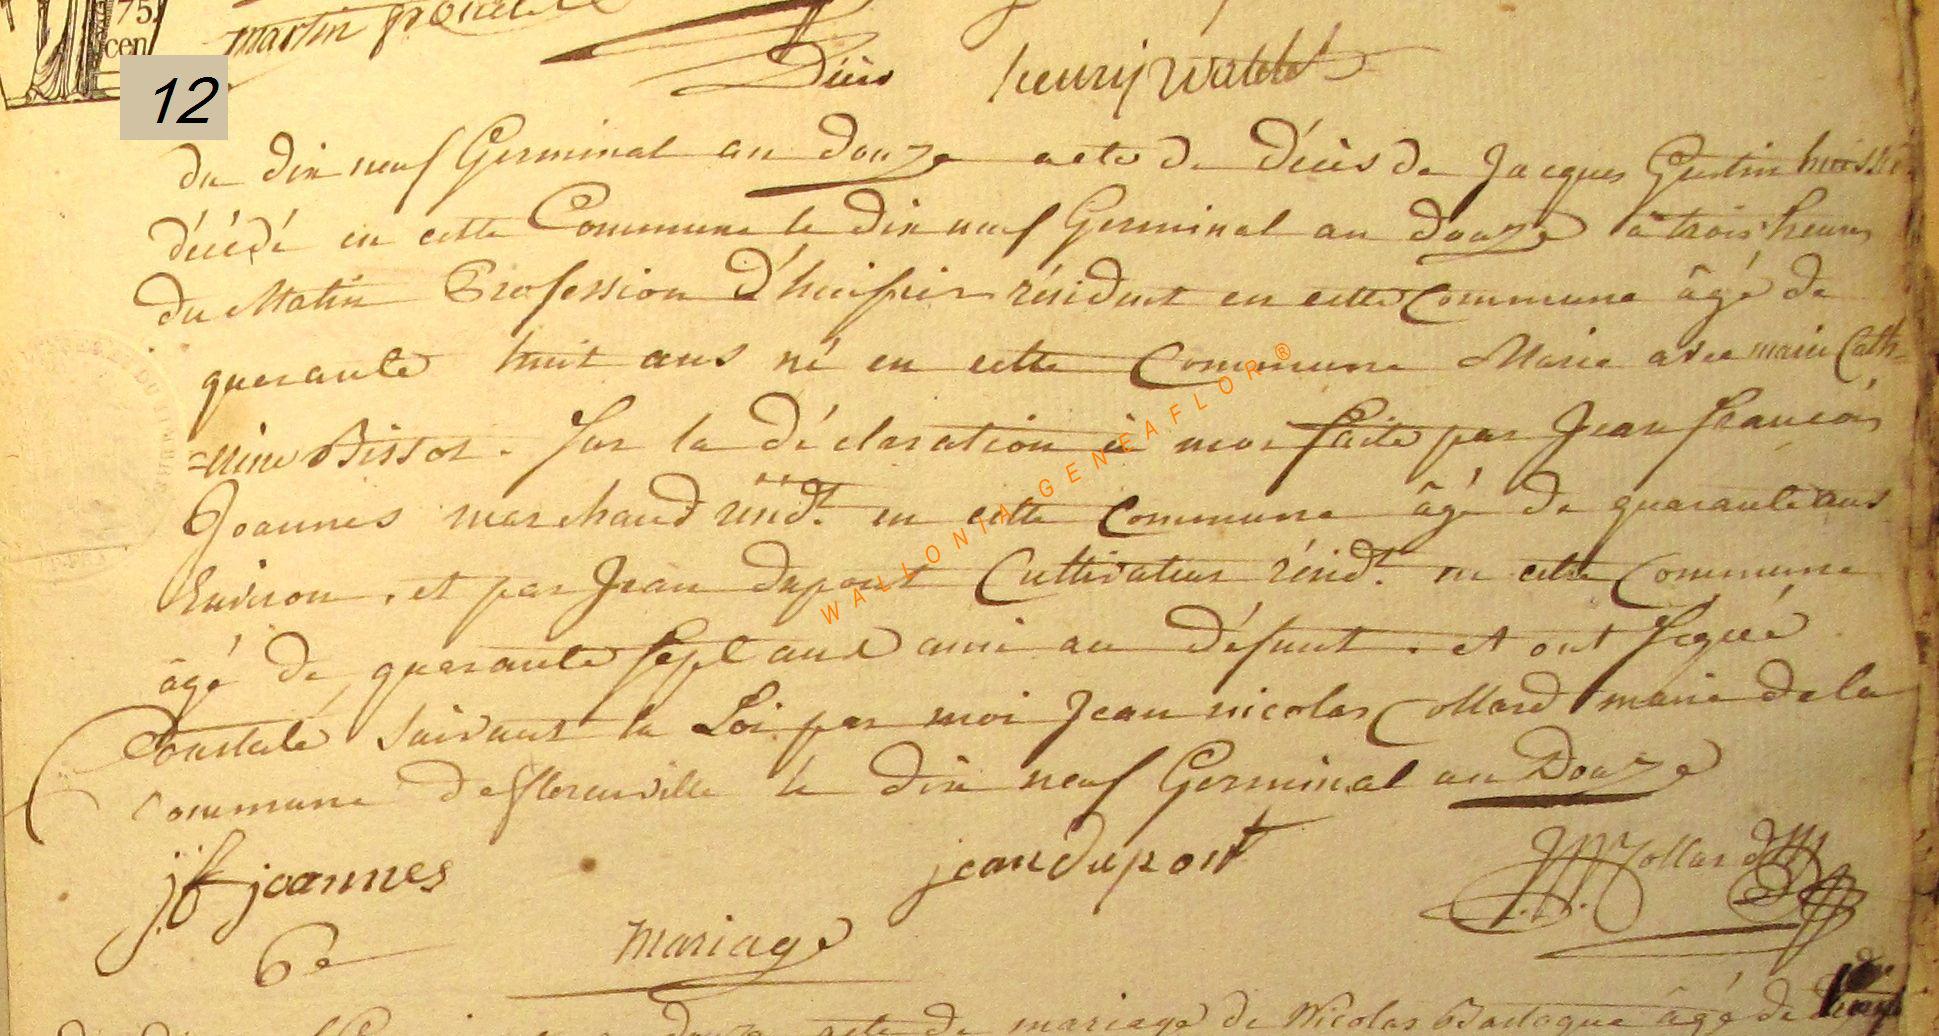 75
cen
martin
Décès henrij
12
du dix neuf Germinal an douze acte de décès de Jacques Gustin
décédé en cette Commune le dix neuf Germinal an douze à trois heures
du Matin Profession d'huissier résident en cette Commune âgé de
quarante huit ans né en cette Commune Marié avec marie Cath-
=rine Bissot. Sur la déclaration à moi faite par Jean françois
Joannes marchand résidt. en cette Commune âgé de quarante ans
Environ, et par Jean dupont Cultivateur résidt. en cette Commune
âgé de quarante sept ans ami au défunt. et ont signé
Constaté suivant la Loi par moi Jean nicolas Collard maire de la
Commune de florenville le dix neuf Germinal an Douze
jf joannes jean dupont Collard
6e mariage
acte de mariage de Nicolas âgé de
WALLONIA GENEAFLOR ®